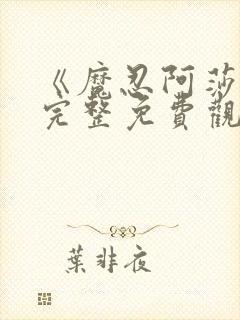 《魔忍阿莎
完整免費觀
葉非夜